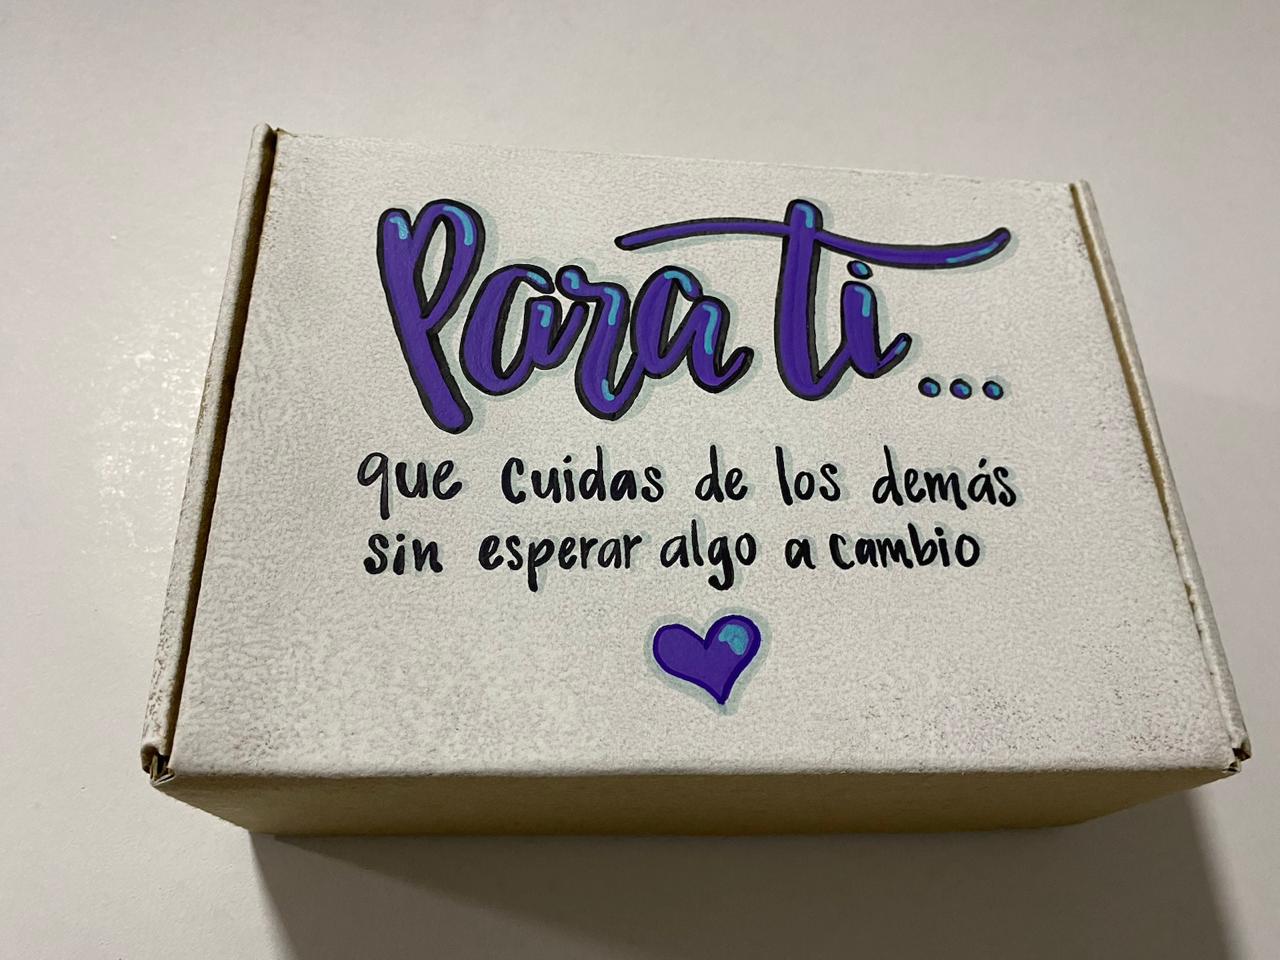 Para ti...
que cuidas de los demás
sin esperar algo a cambio